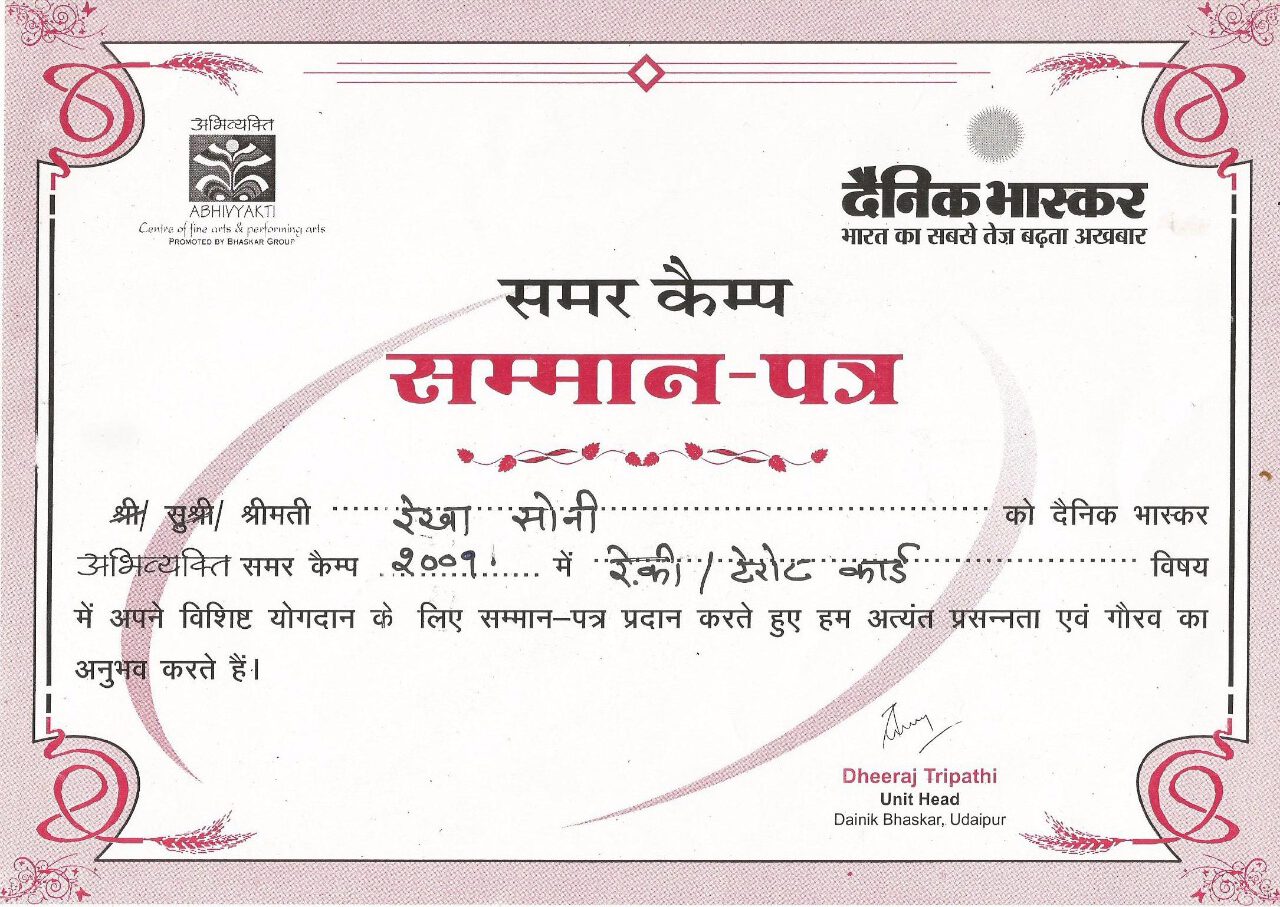 अभिव्यक्ति
ABHIVYAKTI
Centre of fine arts & performing arts
PROMOTED BY BHASKAR GROUP
दैनिक भास्कर
भारत का सबसे तेज़ बढ़ता अखबार
समर कैम्प
सम्मान-पत्र
श्री/ सुश्री/ श्रीमती रेखा सोनी को दैनिक भास्कर
अभिव्यक्ति समर कैम्प २००१ में रेकी / टेरोट कार्ड विषय
में अपने विशिष्ट योगदान के लिए सम्मान-पत्र प्रदान करते हुए हम अत्यंत प्रसन्नता एवं गौरव का
अनुभव करते हैं।
Dheeraj Tripathi
Unit Head
Dainik Bhaskar, Udaipur